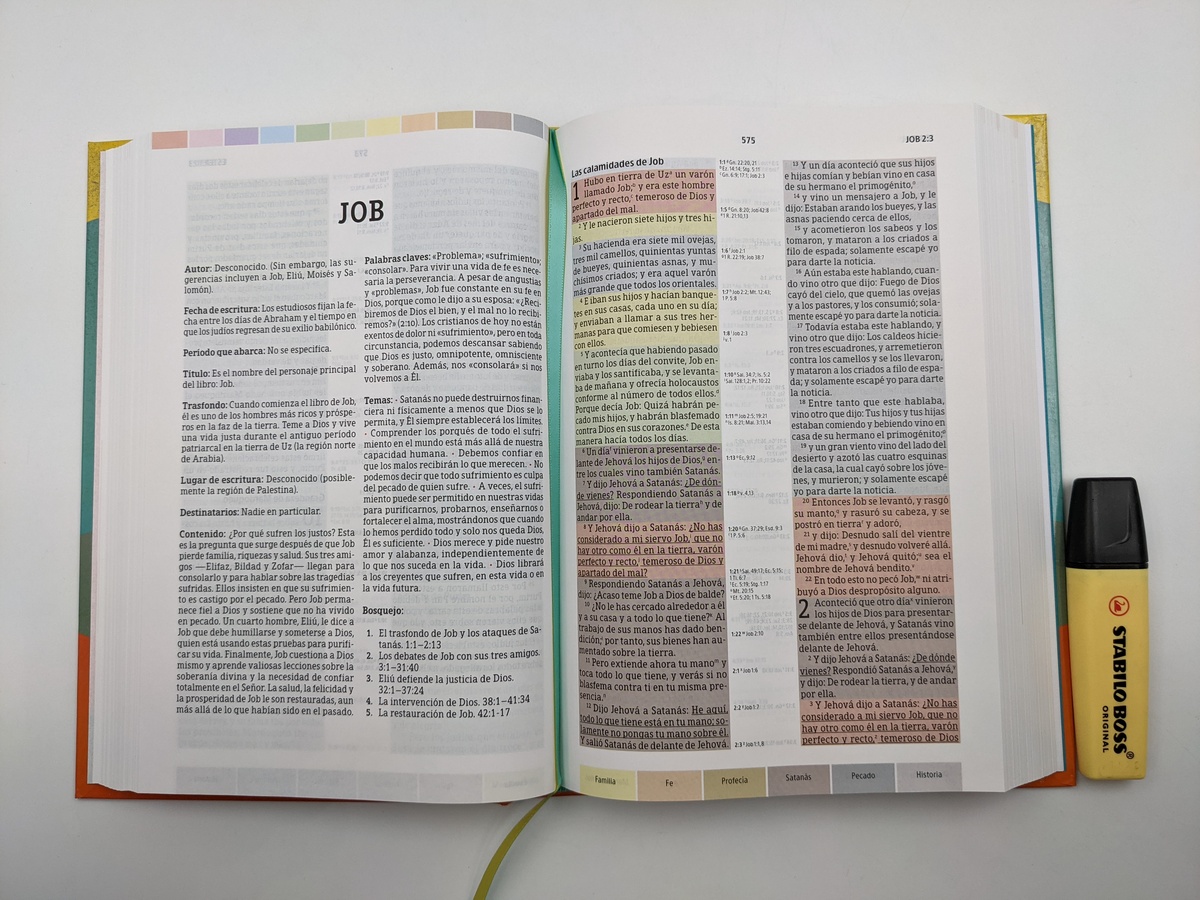 JOB
Autor: Desconocido. (Sin embargo, las su-
gerencias incluyen a Job, Eliú, Moisés y Sa-
lomón).
Fecha de escritura: Los estudiosos fijan la fe-
cha entre los días de Abraham y el tiempo en
que los judíos regresan de su exilio babilónico.
Periodo que abarca: No se especifica.
Título: Es el nombre del personaje principal
del libro: Job.
Trasfondo: Cuando comienza el libro de Job,
él es uno de los hombres más ricos y próspe-
ros en la faz de la tierra. Teme a Dios y vive
una vida justa durante el antiguo periodo
patriarcal en la tierra de Uz (la región norte
de Arabia).
Lugar de escritura: Desconocido (posible-
mente la región de Palestina).
Destinatarios: Nadie en particular.
Contenido: ¿Por qué sufren los justos? Esta
es la pregunta que surge después de que Job
pierde familia, riquezas y salud. Sus tres ami-
gos —Elifaz, Bildad y Zofar— llegan para
consolarlo y para hablar sobre las tragedias
sufridas. Ellos insisten en que su sufrimien-
to es castigo por el pecado. Pero Job perma-
nece fiel a Dios y sostiene que no ha vivido
en pecado. Un cuarto hombre, Eliú, le dice a
Job que debe humillarse y someterse a Dios,
quien está usando estas pruebas para purifi-
car su vida. Finalmente, Job cuestiona a Dios
mismo y aprende valiosas lecciones sobre la
soberanía divina y la necesidad de confiar
totalmente en el Señor. La salud, la felicidad y
la prosperidad de Job le son restauradas, aun
más allá de lo que habían sido en el pasado.
Palabras claves: «Problema»; «sufrimiento»;
«consolar». Para vivir una vida de fe es nece-
saria la perseverancia. A pesar de angustias
y «problemas», Job fue constante en su fe en
Dios, porque como le dijo a su esposa: «¿Reci-
biremos de Dios el bien, y el mal no lo recibi-
remos?» (2:10). Los cristianos de hoy no están
exentos de dolor ni «sufrimiento», pero en toda
circunstancia, podemos descansar sabiendo
que Dios es justo, omnipotente, omnisciente
y soberano. Además, nos «consolará» si nos
volvemos a Él.
Temas: · Satanás no puede destruirnos finan-
ciera ni físicamente a menos que Dios se lo
permita, y Él siempre establecerá los límites.
· Comprender los porqués de todo el sufri-
miento en el mundo está más allá de nuestra
capacidad humana. · Debemos confiar en
que los malos recibirán lo que merecen. · No
podemos decir que todo sufrimiento es culpa
del pecado de quien sufre. · A veces, el sufri-
miento puede ser permitido en nuestras vidas
para purificarnos, probarnos, enseñarnos o
fortalecer el alma, mostrándonos que cuando
lo hemos perdido todo y solo nos queda Dios,
Él es suficiente. · Dios merece y pide nuestro
amor y alabanza, independientemente de
lo que nos suceda en la vida. · Dios librará
a los creyentes que sufren, en esta vida o en
la vida futura.
Bosquejo:
1. El trasfondo de Job y los ataques de Sa-
tanás. 1:1–2:13
2. Los debates de Job con sus tres amigos.
3:1–31:40
3. Eliú defiende la justicia de Dios.
32:1–37:24
4. La intervención de Dios. 38:1–41:34
5. La restauración de Job. 42:1-17
575
JOB 2:3
Las calamidades de Job
1 Hubo en tierra de Uz un varón
llamado Job; y era este hombre
perfecto y recto, temeroso de Dios y
apartado del mal.
2 Y le nacieron siete hijos y tres hi-
jas.
3 Su hacienda era siete mil ovejas,
tres mil camellos, quinientas yuntas
de bueyes, quinientas asnas, y mu-
chísimos criados; y era aquel varón
más grande que todos los orientales.
4 E iban sus hijos y hacían banque-
tes en sus casas, cada uno en su día;
y enviaban a llamar a sus tres her-
manas para que comiesen y bebiesen
con ellos.
5 Y acontecía que habiendo pasado
en turno los días del convite, Job en-
viaba y los santificaba, y se levanta-
ba de mañana y ofrecía holocaustos
conforme al número de todos ellos.
Porque decía Job: Quizá habrán pe-
cado mis hijos, y habrán blasfemado
contra Dios en sus corazones. De esta
manera hacía todos los días.
6 Un día vinieron a presentarse de-
lante de Jehová los hijos de Dios, en-
tre los cuales vino también Satanás.
7 Y dijo Jehová a Satanás: ¿De dón-
de vienes? Respondiendo Satanás a
Jehová, dijo: De rodear la tierra y de
andar por ella.
8 Y Jehová dijo a Satanás: ¿No has
considerado a mi siervo Job, que no
hay otro como él en la tierra, varón
perfecto y recto, temeroso de Dios y
apartado del mal?
9 Respondiendo Satanás a Jehová,
dijo: ¿Acaso teme Job a Dios de balde?
10 ¿No le has cercado alrededor a él
y a su casa y a todo lo que tiene? Al
trabajo de sus manos has dado ben-
dición; por tanto, sus bienes han au-
mentado sobre la tierra.
11 Pero extiende ahora tu mano y
toca todo lo que tiene, y verás si no
blasfema contra ti en tu misma pre-
sencia.
12 Dijo Jehová a Satanás: He aquí,
todo lo que tiene está en tu mano; so-
lamente no pongas tu mano sobre él.
Y salió Satanás de delante de Jehová.
13 Y un día aconteció que sus hijos
e hijas comían y bebían vino en casa
de su hermano el primogénito,
14 y vino un mensajero a Job, y le
dijo: Estaban arando los bueyes, y las
asnas paciendo cerca de ellos,
15 y acometieron los sabeos y los
tomaron, y mataron a los criados a
filo de espada; solamente escapé yo
para darte la noticia.
16 Aún estaba este hablando, cuan-
do vino otro que dijo: Fuego de Dios
cayó del cielo, que quemó las ovejas
y a los pastores, y los consumió; sola-
mente escapé yo para darte la noticia.
17 Todavía estaba este hablando, y
vino otro que dijo: Los caldeos hicie-
ron tres escuadrones, y arremetieron
contra los camellos y se los llevaron,
y mataron a los criados a filo de espa-
da; y solamente escapé yo para darte
la noticia.
18 Entre tanto que este hablaba,
vino otro que dijo: Tus hijos y tus hijas
estaban comiendo y bebiendo vino en
casa de su hermano el primogénito;
19 y un gran viento vino del lado del
desierto y azotó las cuatro esquinas
de la casa, la cual cayó sobre los jóve-
nes, y murieron; y solamente escapé
yo para darte la noticia.
20 Entonces Job se levantó, y rasgó
su manto, y rasuró su cabeza, y se
postró en tierra y adoró,
21 y dijo: Desnudo salí del vientre
de mi madre, y desnudo volveré allá.
Jehová dio, y Jehová quitó; sea el
nombre de Jehová bendito.
22 En todo esto no pecó Job, ni atri-
buyó a Dios despropósito alguno.
2 Aconteció que otro día vinieron
los hijos de Dios para presentar-
se delante de Jehová, y Satanás vino
también entre ellos presentándose
delante de Jehová.
2 Y dijo Jehová a Satanás: ¿De dónde
vienes? Respondió Satanás a Jehová,
y dijo: De rodear la tierra, y de andar
por ella.
3 Y Jehová dijo a Satanás: ¿No has
considerado a mi siervo Job, que no
hay otro como él en la tierra, varón
perfecto y recto, temeroso de Dios
Familia
Fe
Profecía
Satanás
Pecado
Historia
STABILO BOSS®
ORIGINAL